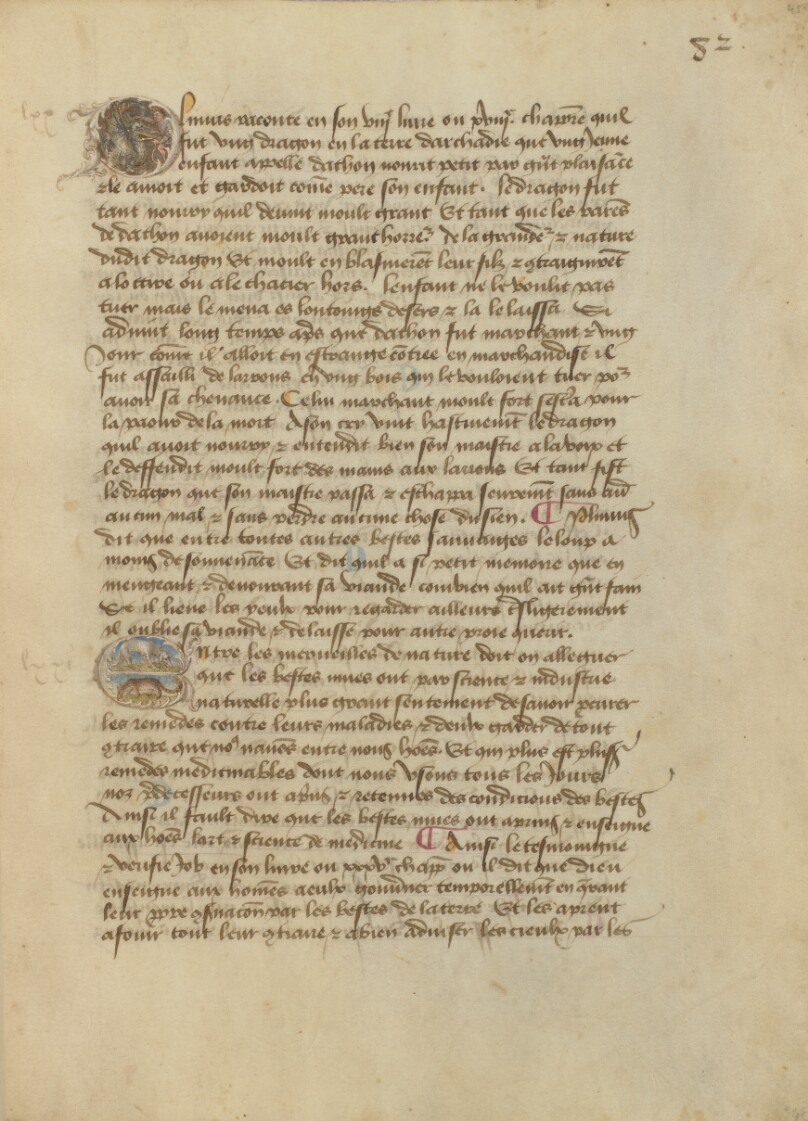 82
Plinius raconte en son viij livre ou xviij. chapitre quil
fut vng dragon en la terre darchadie que vng Jeune
enfant appelle dathon nourit petit par gñt plaisāce
⁊ le amoit et gardoit cōme pere son enfant. le dragon fut
tant nourry quil devint moult grant Et tant que les parēs
de dathon avoient moult grant horreʳ de la grandeʳ ⁊ nature
dudit dragon Et moult en blasmerēt leur filz ⁊ 9traignirēt
a loccire ou a le chacier hors. lenfant ne le voulut pas
tuer mais le mena es loutoings desers ⁊ la le laissa Si
advint long temps aps que dathon fut marchant ⁊ vng
Jour cōme il alloit en estrange cōtree en marchandise il
fut assailli de larrons en vng bois qui le vouloient tuer poʳ
avoir sa chevance. Celui marchant moult fort sescria pour
la paour de la mort A son cry vint hastivemēt le dragon
quil avoit nourry ⁊ entendit bien son maistre a la voix et
le deffendit moult fort des mains aux larrons Et tant fist
le dragon que son maistre passa ⁊ eschappa seuremēt sans
aucun mal ⁊ sans perdre aucune chose du sien. ¶ Plinius
dit que entre toutes autres bestes sauvaiges le loup a
moins de souvenāce Et dit quil a si petit memoire que en
mengeant ⁊ devourant sa viande combien quil ait gñt fam
Se il lieve les yeulx pour regarder ailleurs tsligierement
il oublie sa viande ⁊ delaisse pour autre proie querir.
Entre les merveilles de nature doit on alleguer
que les bestes mues ont par science ⁊ industrie
naturelle plus grant sentement de savoir querer
les remedes contre leurs maladies ⁊ deulx garder de tout
9traire que noꝰ navōs entre nous hōes. Et qui plus est pluss
remedes medicinables dont nous Vsons tous les Jours
noz p̄decesseurs ont apris ⁊ retenues des condicions des bestes
Ainsi il fault dire que les bestes mues ont apring ⁊ enseigne
aux hōes lart ⁊ science de medicine ¶ Ainsi le tesmoingne
⁊ verifie Job en son livre ou xxxvᵉ chapp̄ ou il dit que dieu
enseigne aux hōmes a eulx gouv̄ner temporellemt en querant
leur pp̄re 9s̄vacōn par les bestes de la terre Et les aprent
a fouir tout leur 9traire ⁊ a bien adviser les cieulx par les